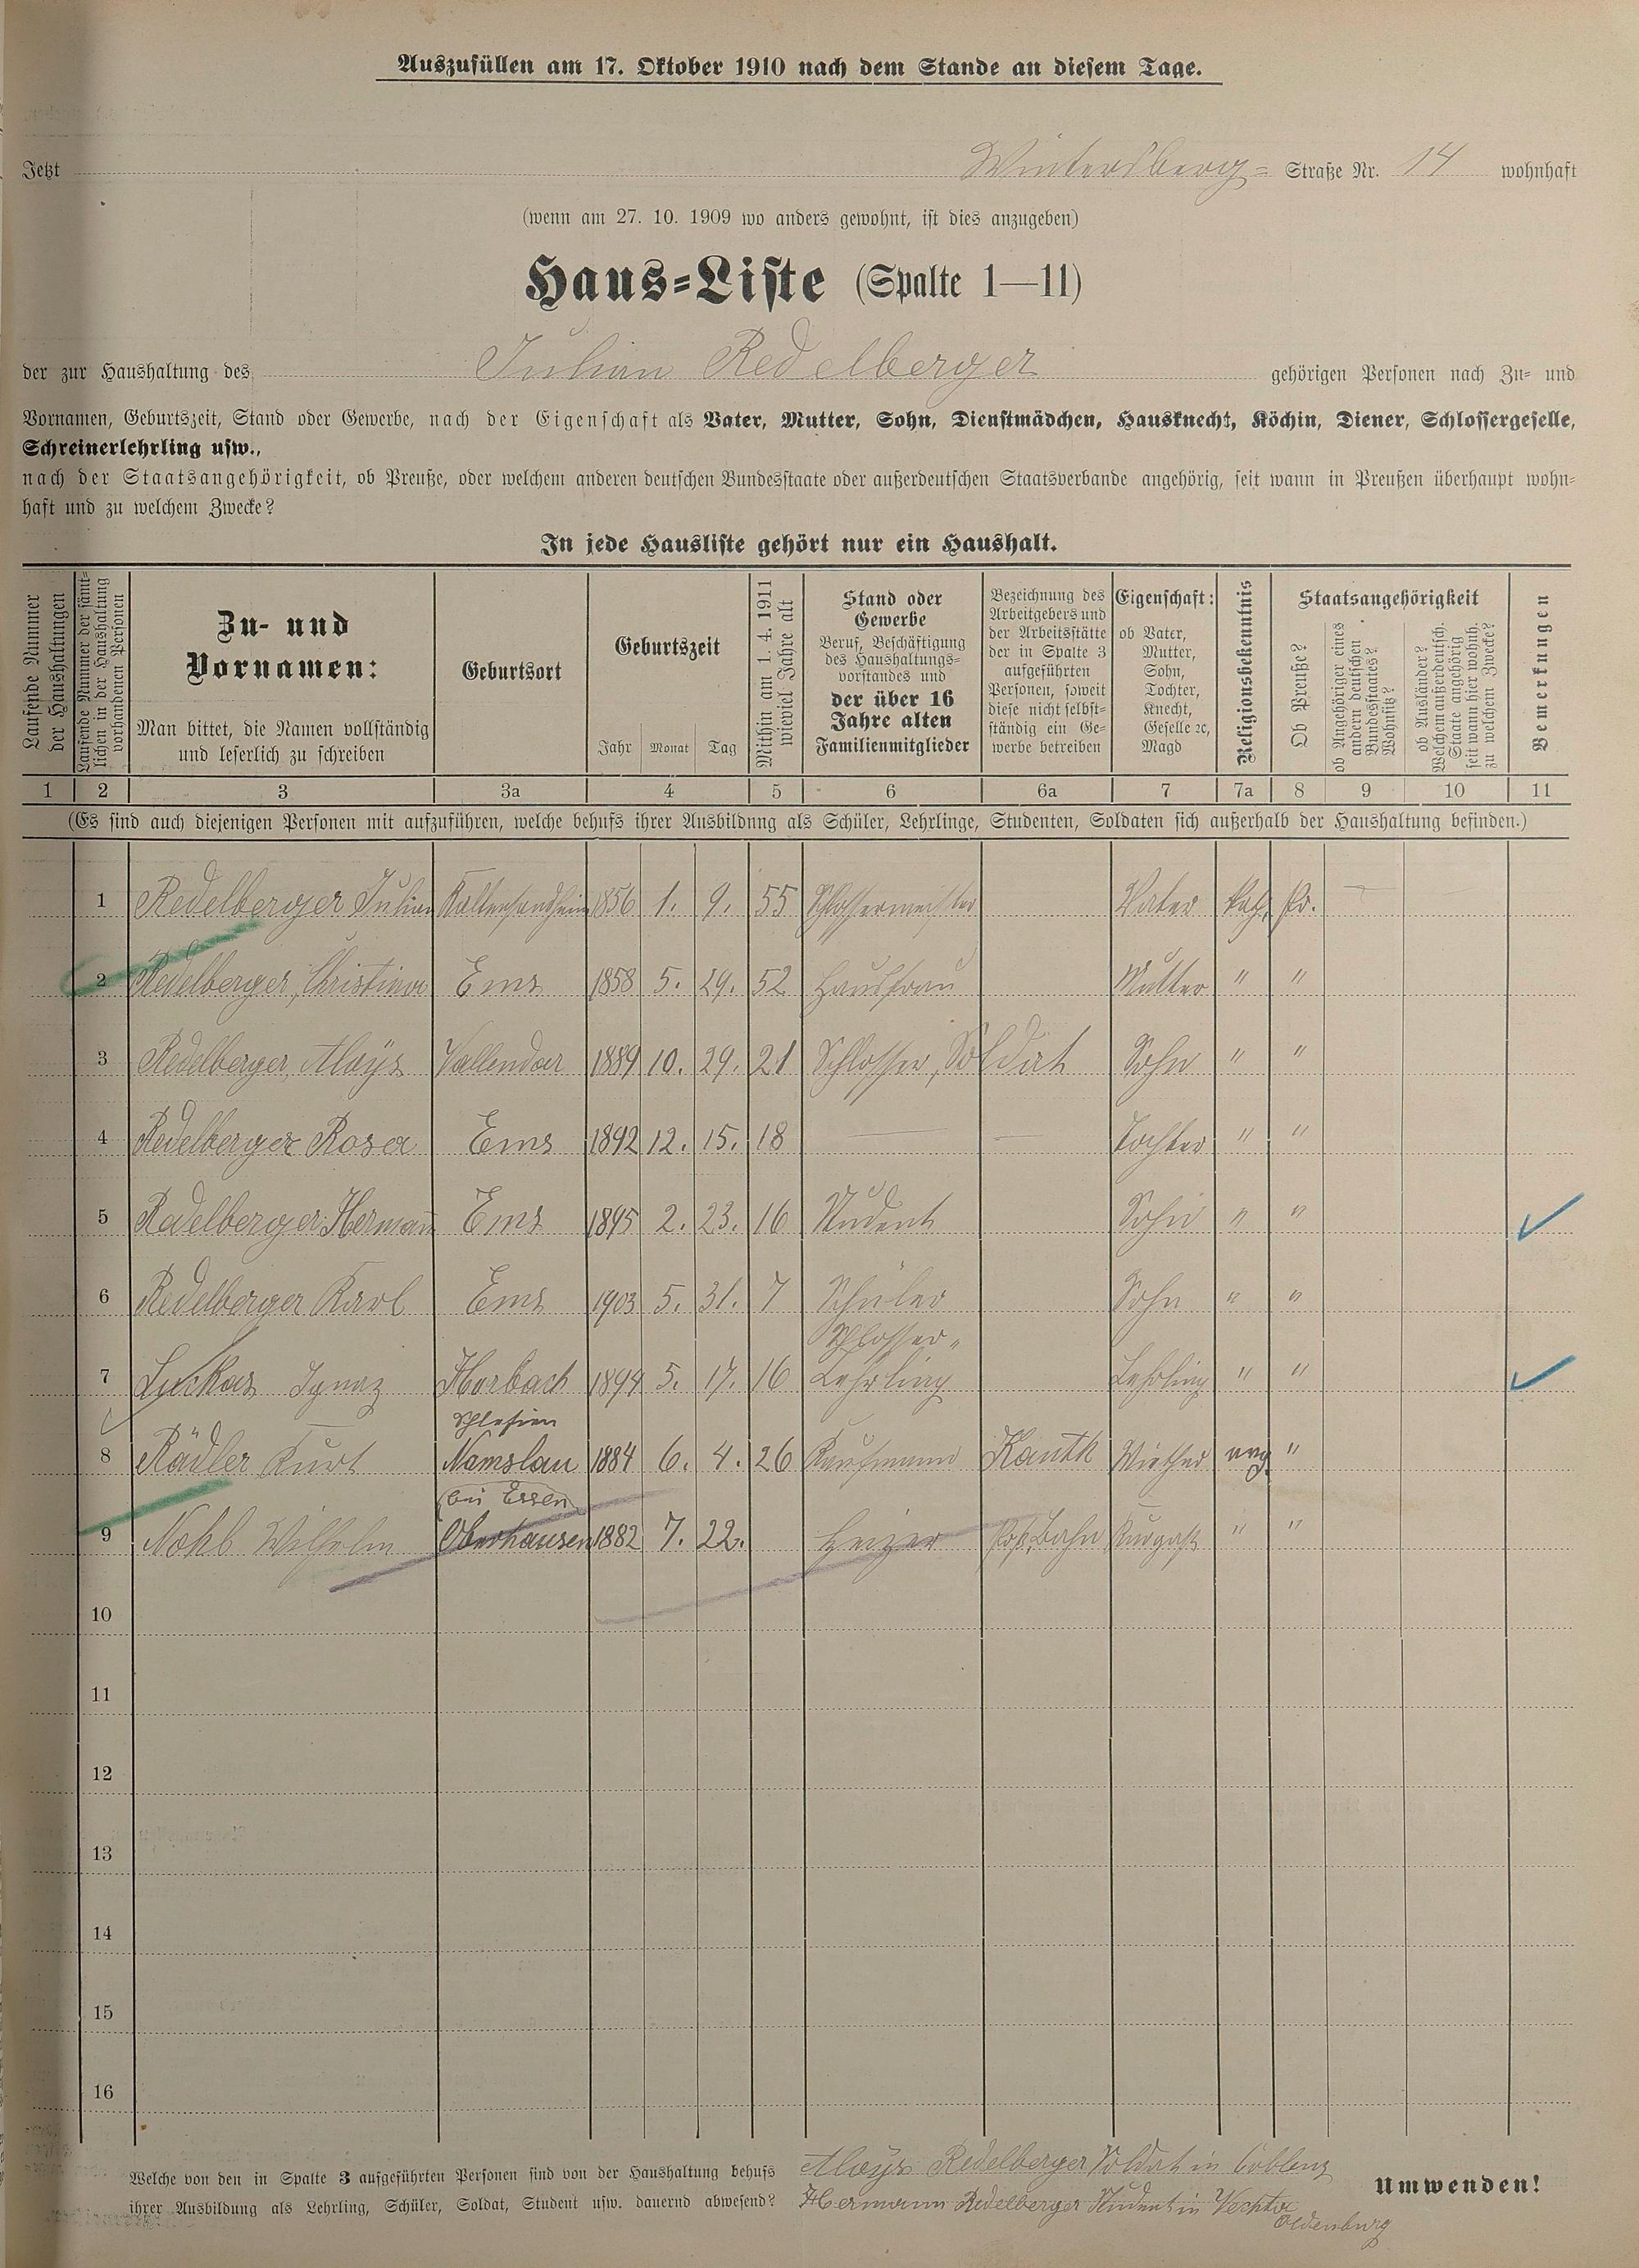 Auszufüllen am 17. Oktober 1910 nach dem Stande an diesem Tage.
Jetzt Wintersberg= Straße Nr. 14 wohnhaft
(wenn am 27. 10. 1909 wo anders gewohnt, ist dies anzugeben)
Haus=Liste (Spalte 1—11)
der zur Haushaltung des Julian Redelberger gehörigen Personen nach Zu= und
Vornamen, Geburtszeit, Stand oder Gewerbe, nach der Eigenschaft als Vater, Mutter, Sohn, Dienstmädchen, Hausknecht, Köchin, Diener, Schlossergeselle,
Schreinerlehrling usw.,
nach der Staatsangehörigkeit, ob Preuße, oder welchem anderen deutschen Bundesstaate oder außerdeutschen Staatsverbande angehörig, seit wann in Preußen überhaupt wohn=
haft und zu welchem Zwecke?
In jede Hausliste gehört nur ein Haushalt.
Laufende Nummer
der Haushaltungen
Laufende Nummer der sämt=
lichen in der Haushaltung
vorhandenen Personen
Zu- und
Vornamen:
Man bittet, die Namen vollständig
und leserlich zu schreiben
Geburtsort
Geburtszeit
Jahr Monat Tag
Mithin am 1. 4. 1911
wieviel Jahre alt
Stand oder
Gewerbe
Beruf, Beschäftigung
des Haushaltungs=
vorstandes und
der über 16
Jahre alten
Familienmitglieder
Bezeichnung des
Arbeitgebers und
der Arbeitsstätte
der in Spalte 3
aufgeführten
Personen, soweit
diese nicht selbst=
ständig ein Ge=
werbe betreiben
Eigenschaft:
ob Vater,
Mutter,
Sohn,
Tochter,
Knecht,
Geselle ꝛc,
Magd
Religionsbekenntnis
Staatsangehörigkeit
Ob Preuße?
ob Angehöriger eines
andern deutschen
Bundesstaates?
Wohnsitz?
ob Ausländer?
Welchem außerdeutsch.
Staate angehörig
seit wann hier wohnh.
zu welchem Zwecke?
Bemerkungen
1 2 3 3a 4 5 6 6a 7 7a 8 9 10 11
(Es sind auch diejenigen Personen mit aufzuführen, welche behufs ihrer Ausbildung als Schüler, Lehrlinge, Studenten, Soldaten sich außerhalb der Haushaltung befinden.)
1 Redelberger Julian Kaltensondheim 1856 1. 9. 55 Schlossermeister Vater kath. Pr.
2 Redelberger, Christina Ems 1858 5. 29. 52 Hausfrau Mutter " "
3 Redelberger, Aloÿs Vallendar 1889 10. 29. 21 Schlosser, Soldat Sohn " "
4 Redelberger Rosa Ems 1892 12. 15. 18 — — Tochter " "
5 Redelberger Hermann Ems 1895 2. 23. 16 Student Sohn " "
6 Redelberger Karl Ems 1903 5. 31. 7 Schüler Sohn " "
Schlosser=
7 Luckas Ignaz Horbach 1894 5. 17. 16 Lehrling Lehrling " "
Schlesien
8 Rädler Kurt Namslau 1884 6. 4. 26 Kaufmann Kauth Miether evg. "
(bei Essen)
9 Nohl Wilhelm Oberhausen 1882 7. 22. Heizer Bahn Kurgast " "
10
11
12
13
14
15
16
Welche von den in Spalte 3 aufgeführten Personen sind von der Haushaltung behufs
ihrer Ausbildung als Lehrling, Schüler, Soldat, Student usw. dauernd abwesend?
Aloys Redelberger Soldat in Coblenz
Hermann Redelberger Student in Vechta
Oldenburg
Umwenden!